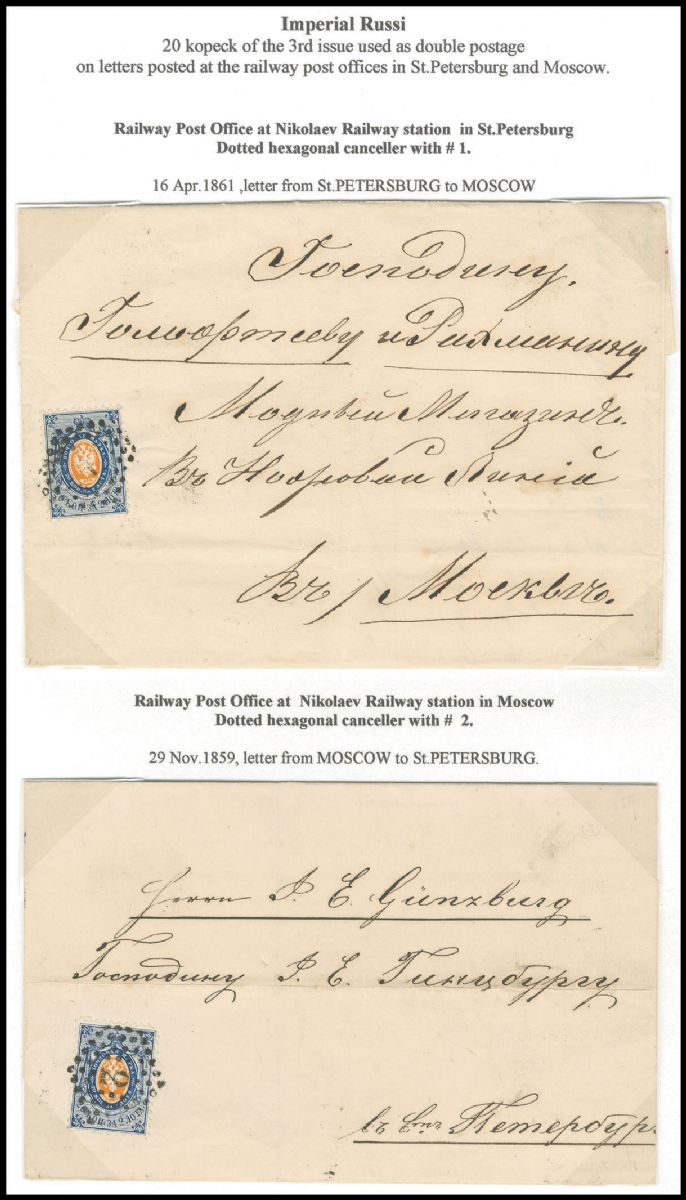 Imperial Russi
20 kopeck of the 3rd issue used as double postage
on letters posted at the railway post offices in St.Petersburg and Moscow.
Railway Post Office at Nikolaev Railway station in St.Petersburg
Dotted hexagonal canceller with # 1.
16 Apr.1861 ,letter from St.PETERSBURG to MOSCOW
Господину.
и Рахманину
Модный Магазинъ.
Въ Линiи
Въ / Москвѣ.
Railway Post Office at Nikolaev Railway station in Moscow
Dotted hexagonal canceller with # 2.
29 Nov.1859, letter from MOSCOW to St.PETERSBURG.
Herrn J. E. Günzburg
Господину I. Е. Гинцбургу
2
въ Петербур